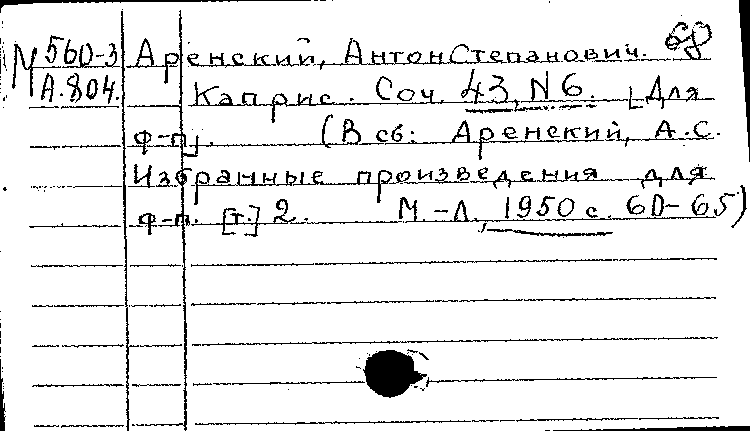 М 560-3 Аренский, Антон Степанович. 68
А.804. Каприс. Соч. 43, N 6. [Для
ф-п].  (В сб: Аренский, А.С.
Избранные произведения для
ф-п. [т.] 2.  М.-Л., 1950 с. 60-65)